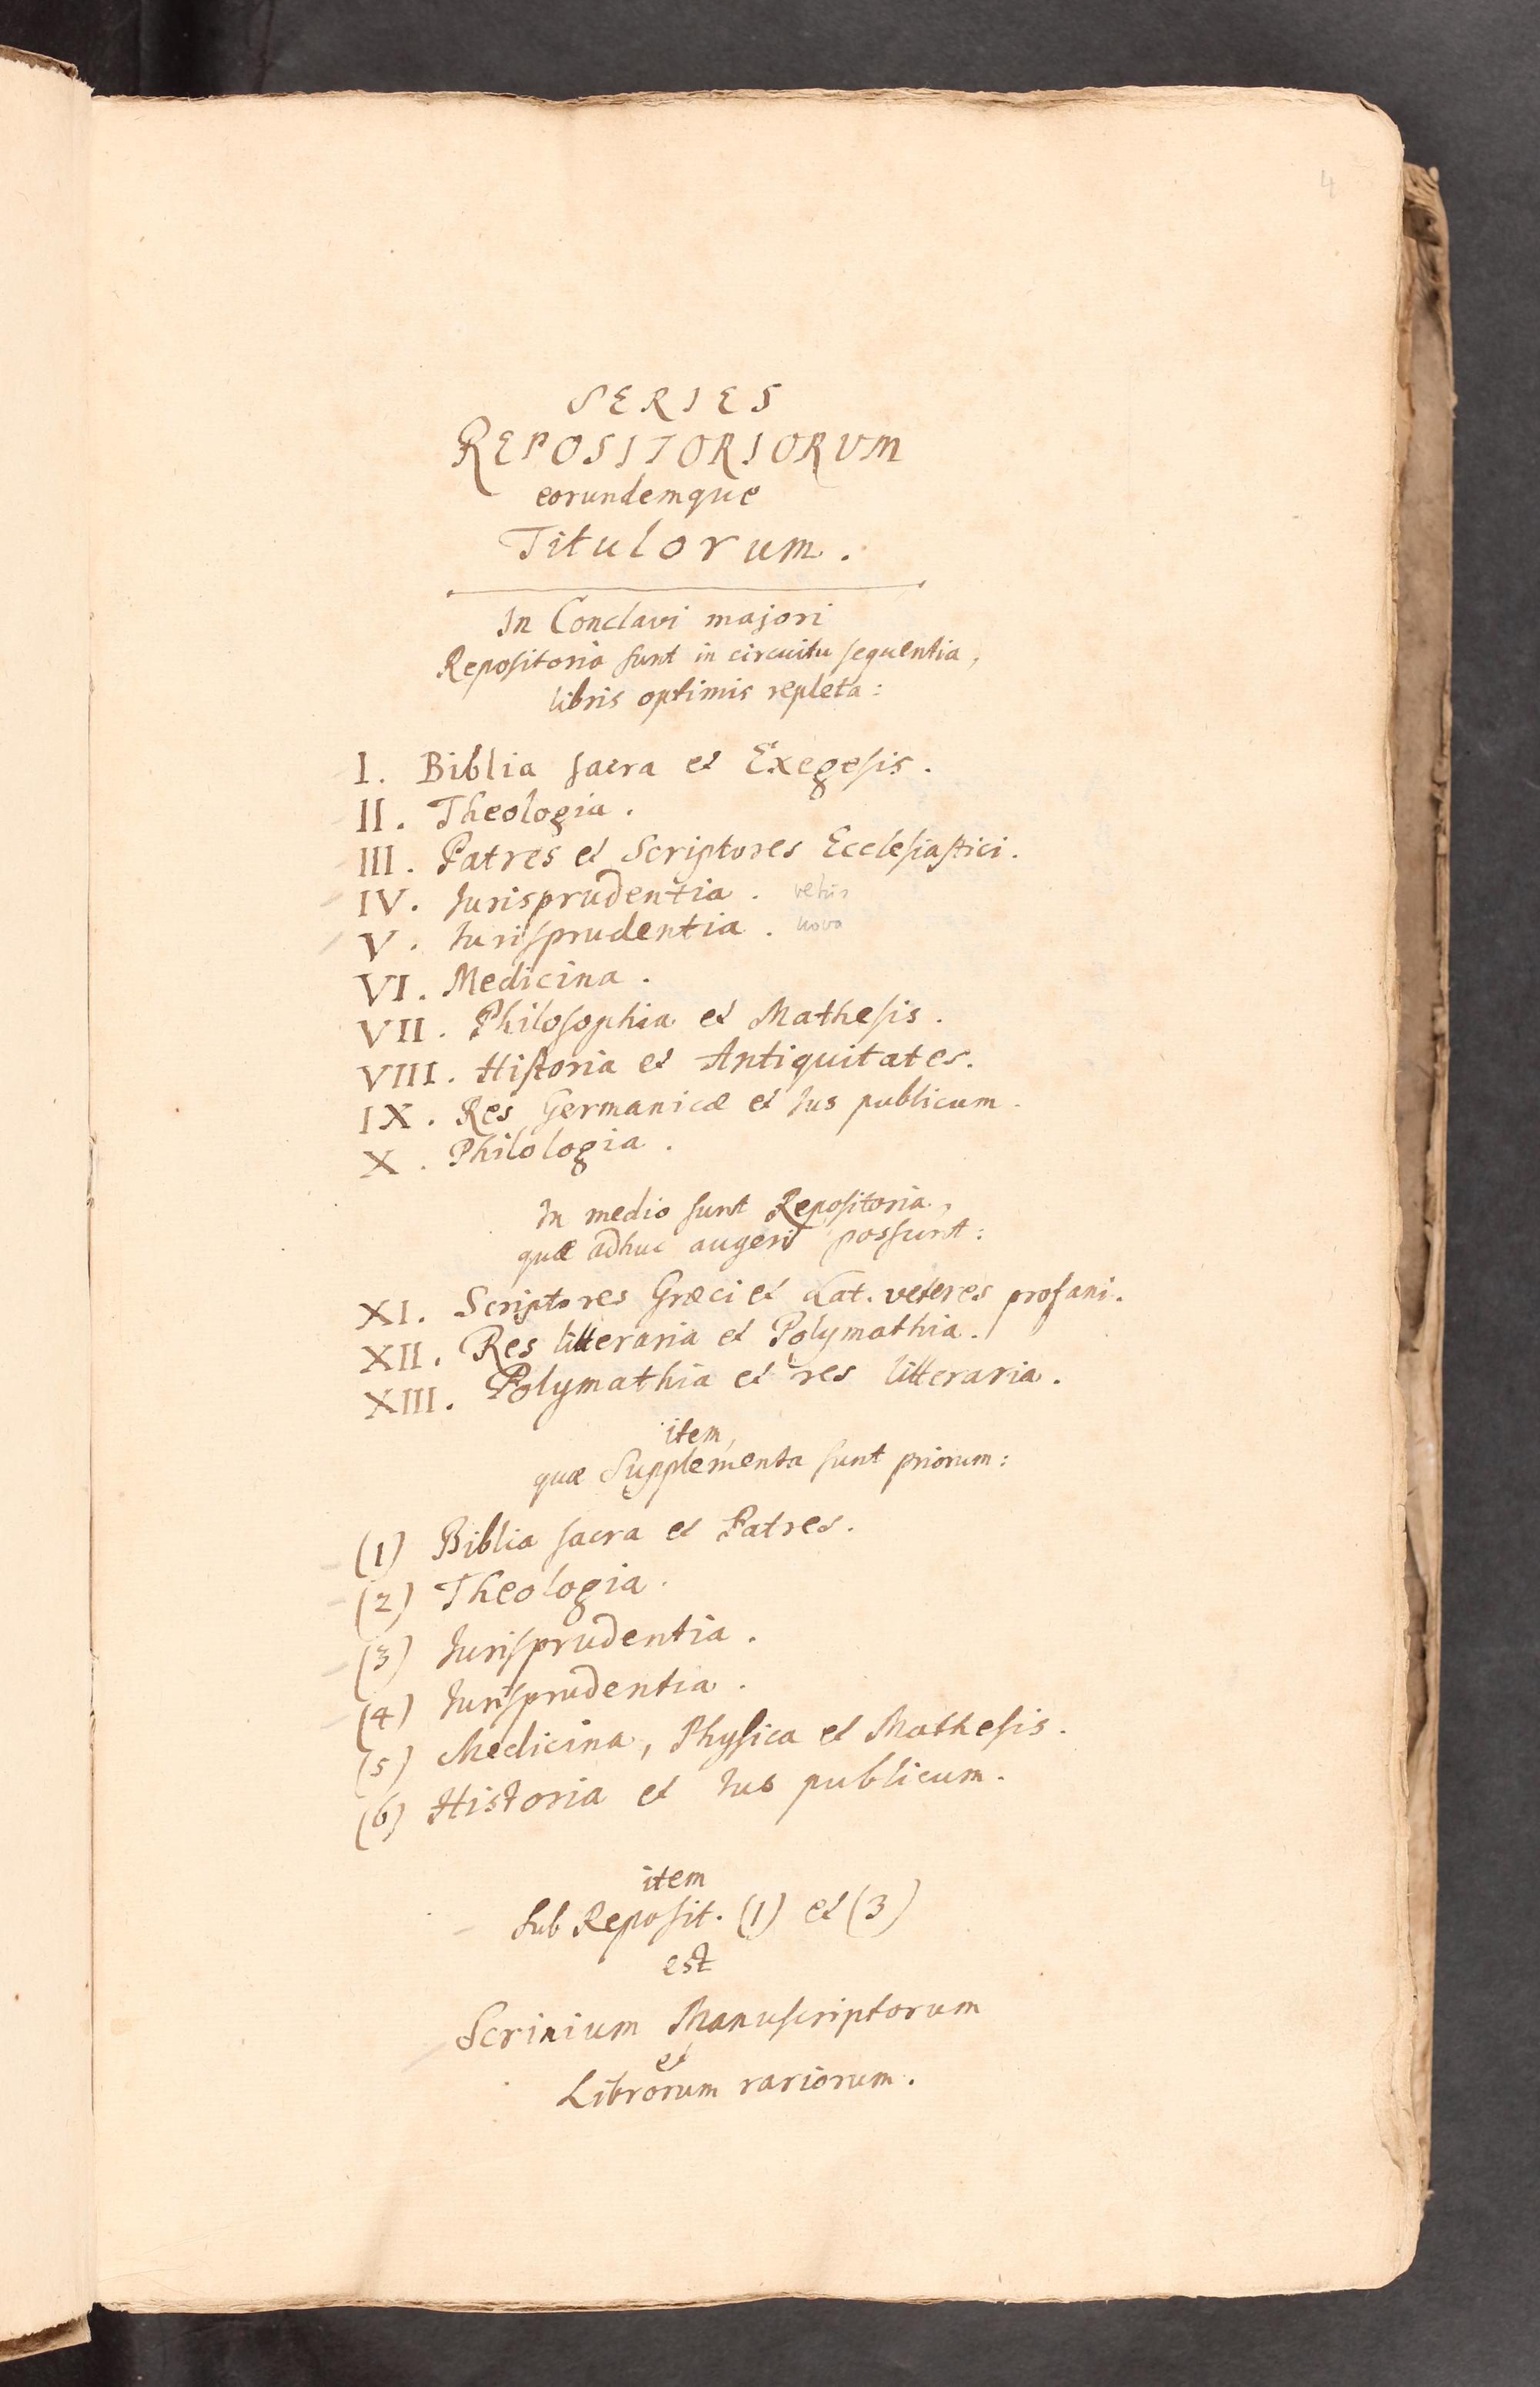 4
SERIES
REPOSITORIORVM
eorundemque
Titulorum.
In Conclavi majori
Repositoria sunt in circuitu sequentia,
libris optimis repleta:
I. Biblia sacra et Exegesis.
II. Theologia.
III. Patres et Scriptores Ecclesiastici.
IV. Iurisprudentia. vetus
V. Iurisprudentia. nova
VI. Medicina.
VII. Philosophia et Mathesis.
VIII. Historia et Antiquitates.
IX. Res Germanicæ et Ius publicum.
X. Philologia.
In medio sunt Repositoria,
quæ adhuc augeri possunt:
XI. Scriptores Græci et Lat. veteres profani.
XII. Res litteraria et Polymathia.
XIII. Polymathia et res litteraria.
item,
quæ Supplementa sunt priorum:
(1) Biblia sacra et Patres.
(2) Theologia.
(3) Iurisprudentia.
(4) Iurisprudentia.
(5) Medicina, Physica et Mathesis.
(6) Historia et Ius publicum.
item
sub Reposit. (1) et (3)
est
Scrinium Manuscriptorum
et
Librorum rariorum.